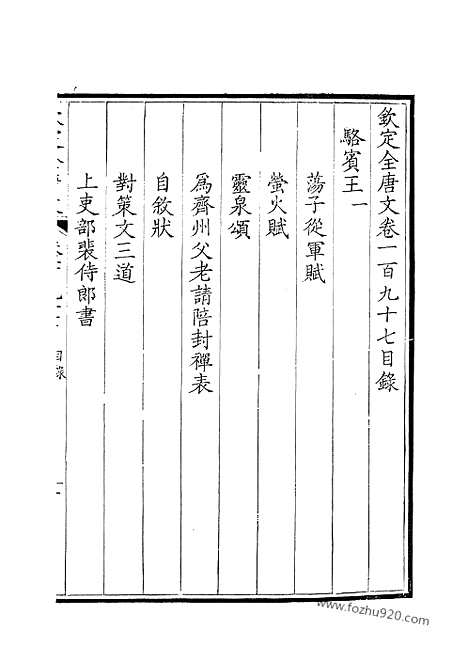 欽定全唐文卷一百九十七目錄
駱賓王一
蕩子從軍賦
螢火賦
靈泉頌
爲齊州父老請陪封禪表
自敘狀
對策文三道
上吏部裴侍郎書
目錄
一
www.fozhu920.com